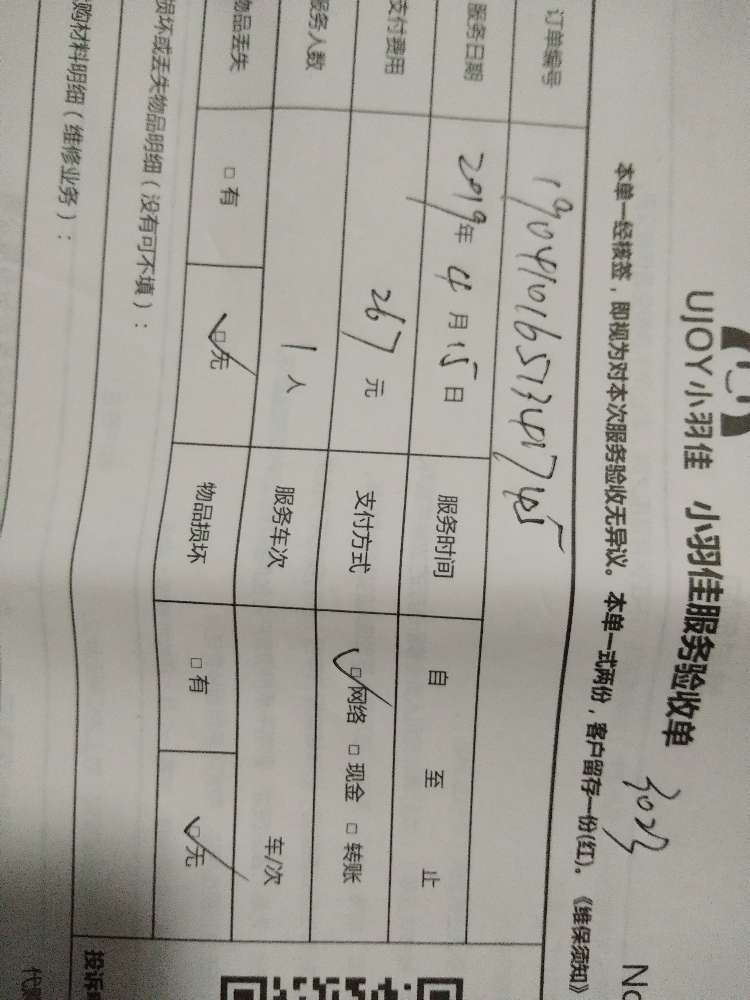 UJOY小羽佳 小羽佳服务验收单
3023
No
本单一经核签，即视为对本次服务验收无异议。本单一式两份，客户留存一份(红)。《维保须知》
订单编号
服务日期 2019年 4月15日 服务时间 自 至 止
支付费用 267元 支付方式 ☑网络 □现金 □转账
服务人数 1人 服务车次 车/次
物品丢失 □有 ☑无 物品损坏 □有 ☑无
损坏或丢失物品明细（没有可不填）：
购材料明细（维修业务）：
投诉
代